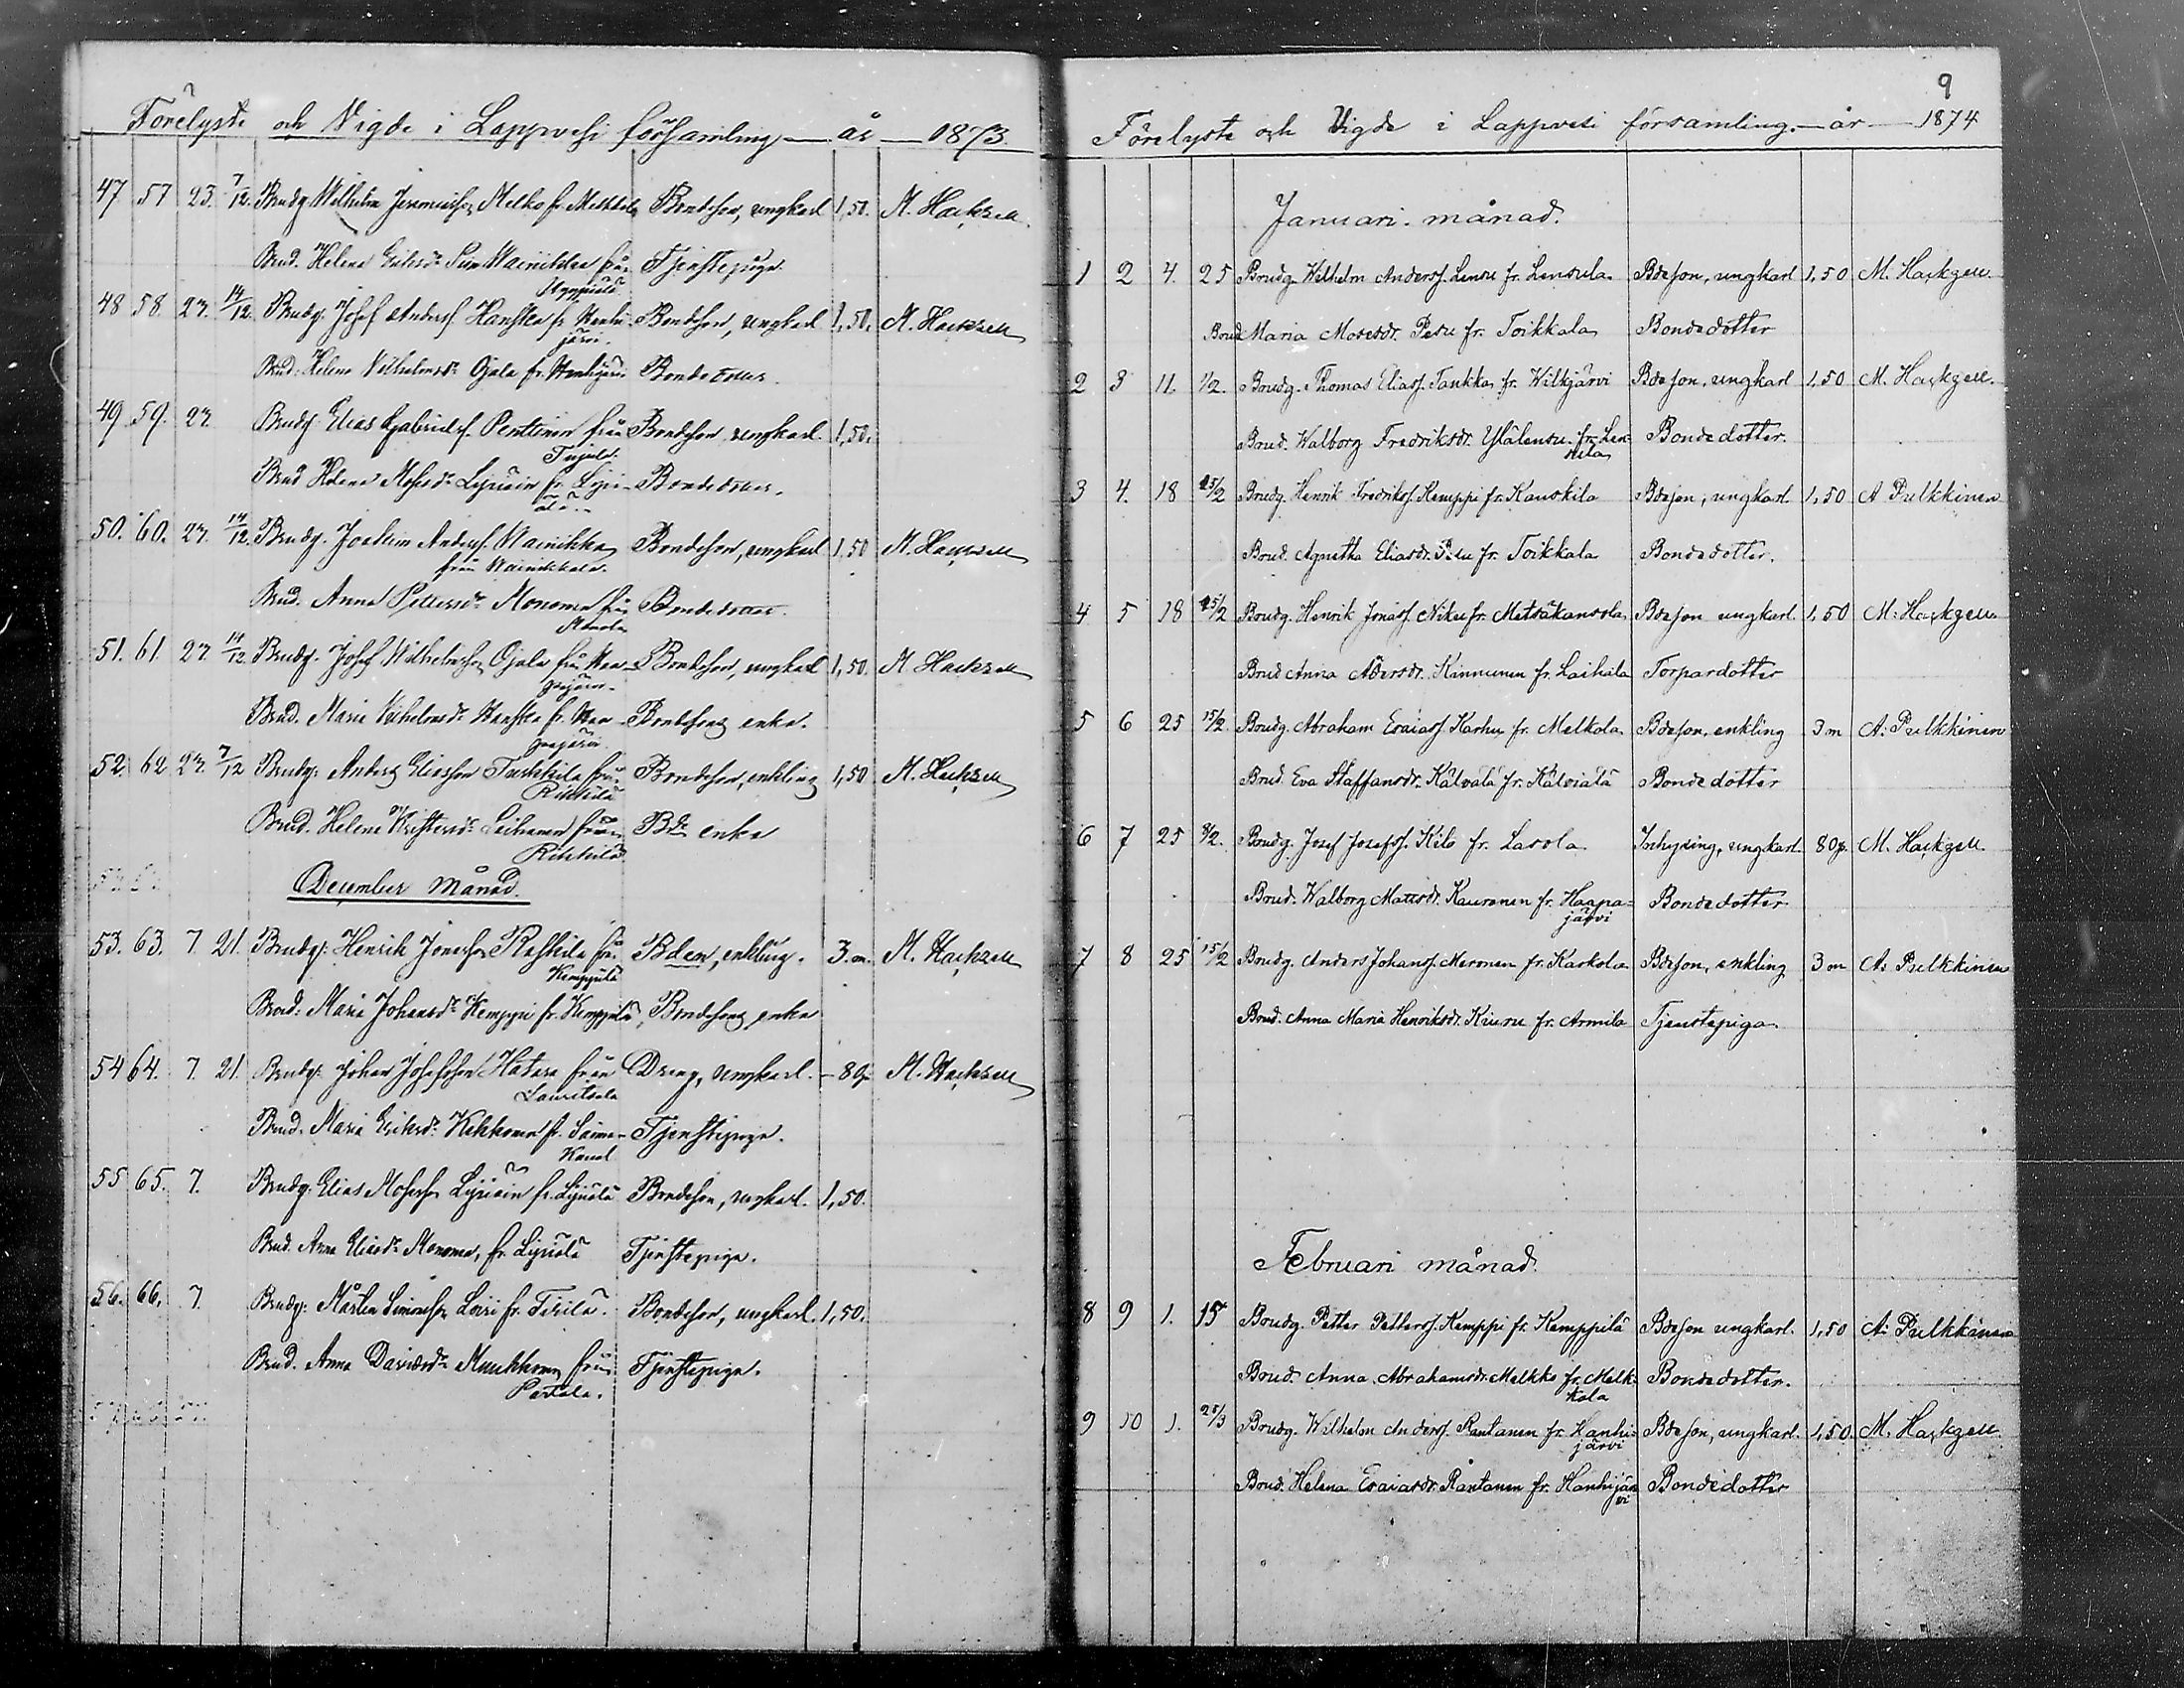 Förelyste och Vigde i Lappvesi församling — år — 1873.
47 57 23. 7/12. Brudg. Wilhelm Jeremiass. Melko fr. Melkkola Bondeson, ungkarl 1,50. M. Hackzell
Brud. Helena Eriksdr. Wainikka från Tjenstepiga.
48 58 23. 14/12. Brudg. Josef Anderss. Hanska fr. Hanhi- Bondeson, ungkarl 1,50. M. Hackzell
järvi.
Brud. Helena Wilhelmsdr. Ojala fr. Hanhijärvi Bondedotter.
49. 59. 23. Brudg. Elias Gabrielss. Penttinen från Bondeson ungkarl. 1,50.
Brud Helena Mosesdr. fr. Bondedotter.
50. 60. 23. 14/12. Brudg. Joakim Anderss. Wainikka Bondeson, ungkarl 1,50 M. Hackzell
från Wainikkala.
Brud. Anna Pettersdr. Mononen från Bondedotter.
Monola
51. 61. 23. 14/12 Brudg. Josef Wilhelmsson Ojala från Haa- Bondeson, ungkarl 1,50. M. Hackzell
pajärvi.
Brud. Maria Wilhelmsdr. Hanska fr. Haa- Bondesons enka.
pajärvi.
52. 62 23. 7/12 Brudg. Anders Eliasson Tuskkila från Bondeson, enkling 1,50 M. Hackzell
Rikkilä
Brud. Helena Kristersdr. från Bds enka
Rikkilä
December Månad.
53. 63. 7. 21. Brudg. Henrik Jonasson Raskila fr. Bden, enkling. 3. m. M. Hackzell
Kemppilä
Brud. Maria Johansdr. Kemppi fr. Kemppilä, Bondesons enka
54 64. 7. 21. Brudg. Johan Josefsson Hatara från Dreng, ungkarl. — 80p. M. Hackzell
Lauritsala
Brud. Maria Eriksdr. Kekkonen fr. Saima Tjenstepiga.
Kanal
55 65. 7. Brudg. Elias Mosesson fr. Bondeson, ungkarl. 1,50.
Brud. Anna Eliasdr. Mononen, fr. Tjenstepiga.
56. 66. 7. Brudg. Mårten Simonsson Loiri fr. Tirilä. Bondeson, ungkarl. 1,50.
Brud. Anna Davidsdr. Muukkonen från Tjenstepiga.
Partala.
9
Förelyste och Vigde i Lappvesi församling. — år — 1874
Januari. månad.
1 2 4. 25 Brudg. Wilhelm Anderss. Lensu fr. Lensula Bdeson, ungkarl 1,50 M. Hackzell.
Brud Maria Mosesdr. Pesu fr. Toikkala Bondedotter
2 3 11. 1/2. Brudg. Thomas Eliass. Tankka fr. Wilkjärvi Bdeson, ungkarl 1,50 M. Hackzell.
Brud. Walborg Fredriksdr. Ylälensu fr. Len- Bondedotter.
sula
3 4. 18 15/2 Brudg. Henrik Fredrikss. Kemppi fr. Kauskila Bdeson, ungkarl. 1,50 A Pulkkinen
Brud. Agnetha Eliasdr. Pesu fr. Toikkala Bondedotter.
4 5 18 15/2 Brudg. Henrik Jonass. Niku fr. Metsäkansola Bdeson ungkarl. 1,50 M. Hackzell
Brud Anna Adersdr. Kinnunen fr. Laihala Torpardotter
5 6 25 15/2. Brudg. Abraham Esaiass. Karhu fr. Melkola Bdeson, enkling 3 m A: Pulkkinen
Brud. Eva Staffansdr. Kälvälä fr. Kälviälä Bondedotter
6 7 25 8/2. Brudg. Josef Josefs. Kilo fr. Lasola Inhysing, ungkarl. 80p. M. Hackzell
Brud. Walborg Mattsdr. Kauranen fr. Haapa- Bondedotter
järvi
7 8 25 15/2 Brudg. Anders Johanss. Meronen fr. Karkola Bdeson, enkling 3 m A: Pulkkinen
Brud. Anna Maria Henriksdr. Kiuru fr. Armila Tjenstepiga
Februari månad.
8 9 1. 15 Brudg. Petter Petterss. Kemppi fr. Kemppilä Bdeson ungkarl. 1,50 A: Pulkkinen
Brud. Anna Abrahamsdr. Melkko fr. Melk- Bondedotter.
kola
9 10 1. 25/3 Brudg. Wilhelm Anders. Rantanen fr. Hanhi- Bdeson, ungkarl. 1,50. M. Hackzell
järvi
Brud. Helena Esaiasdr. Rantanen fr. Hanhijär Bondedotter
vi